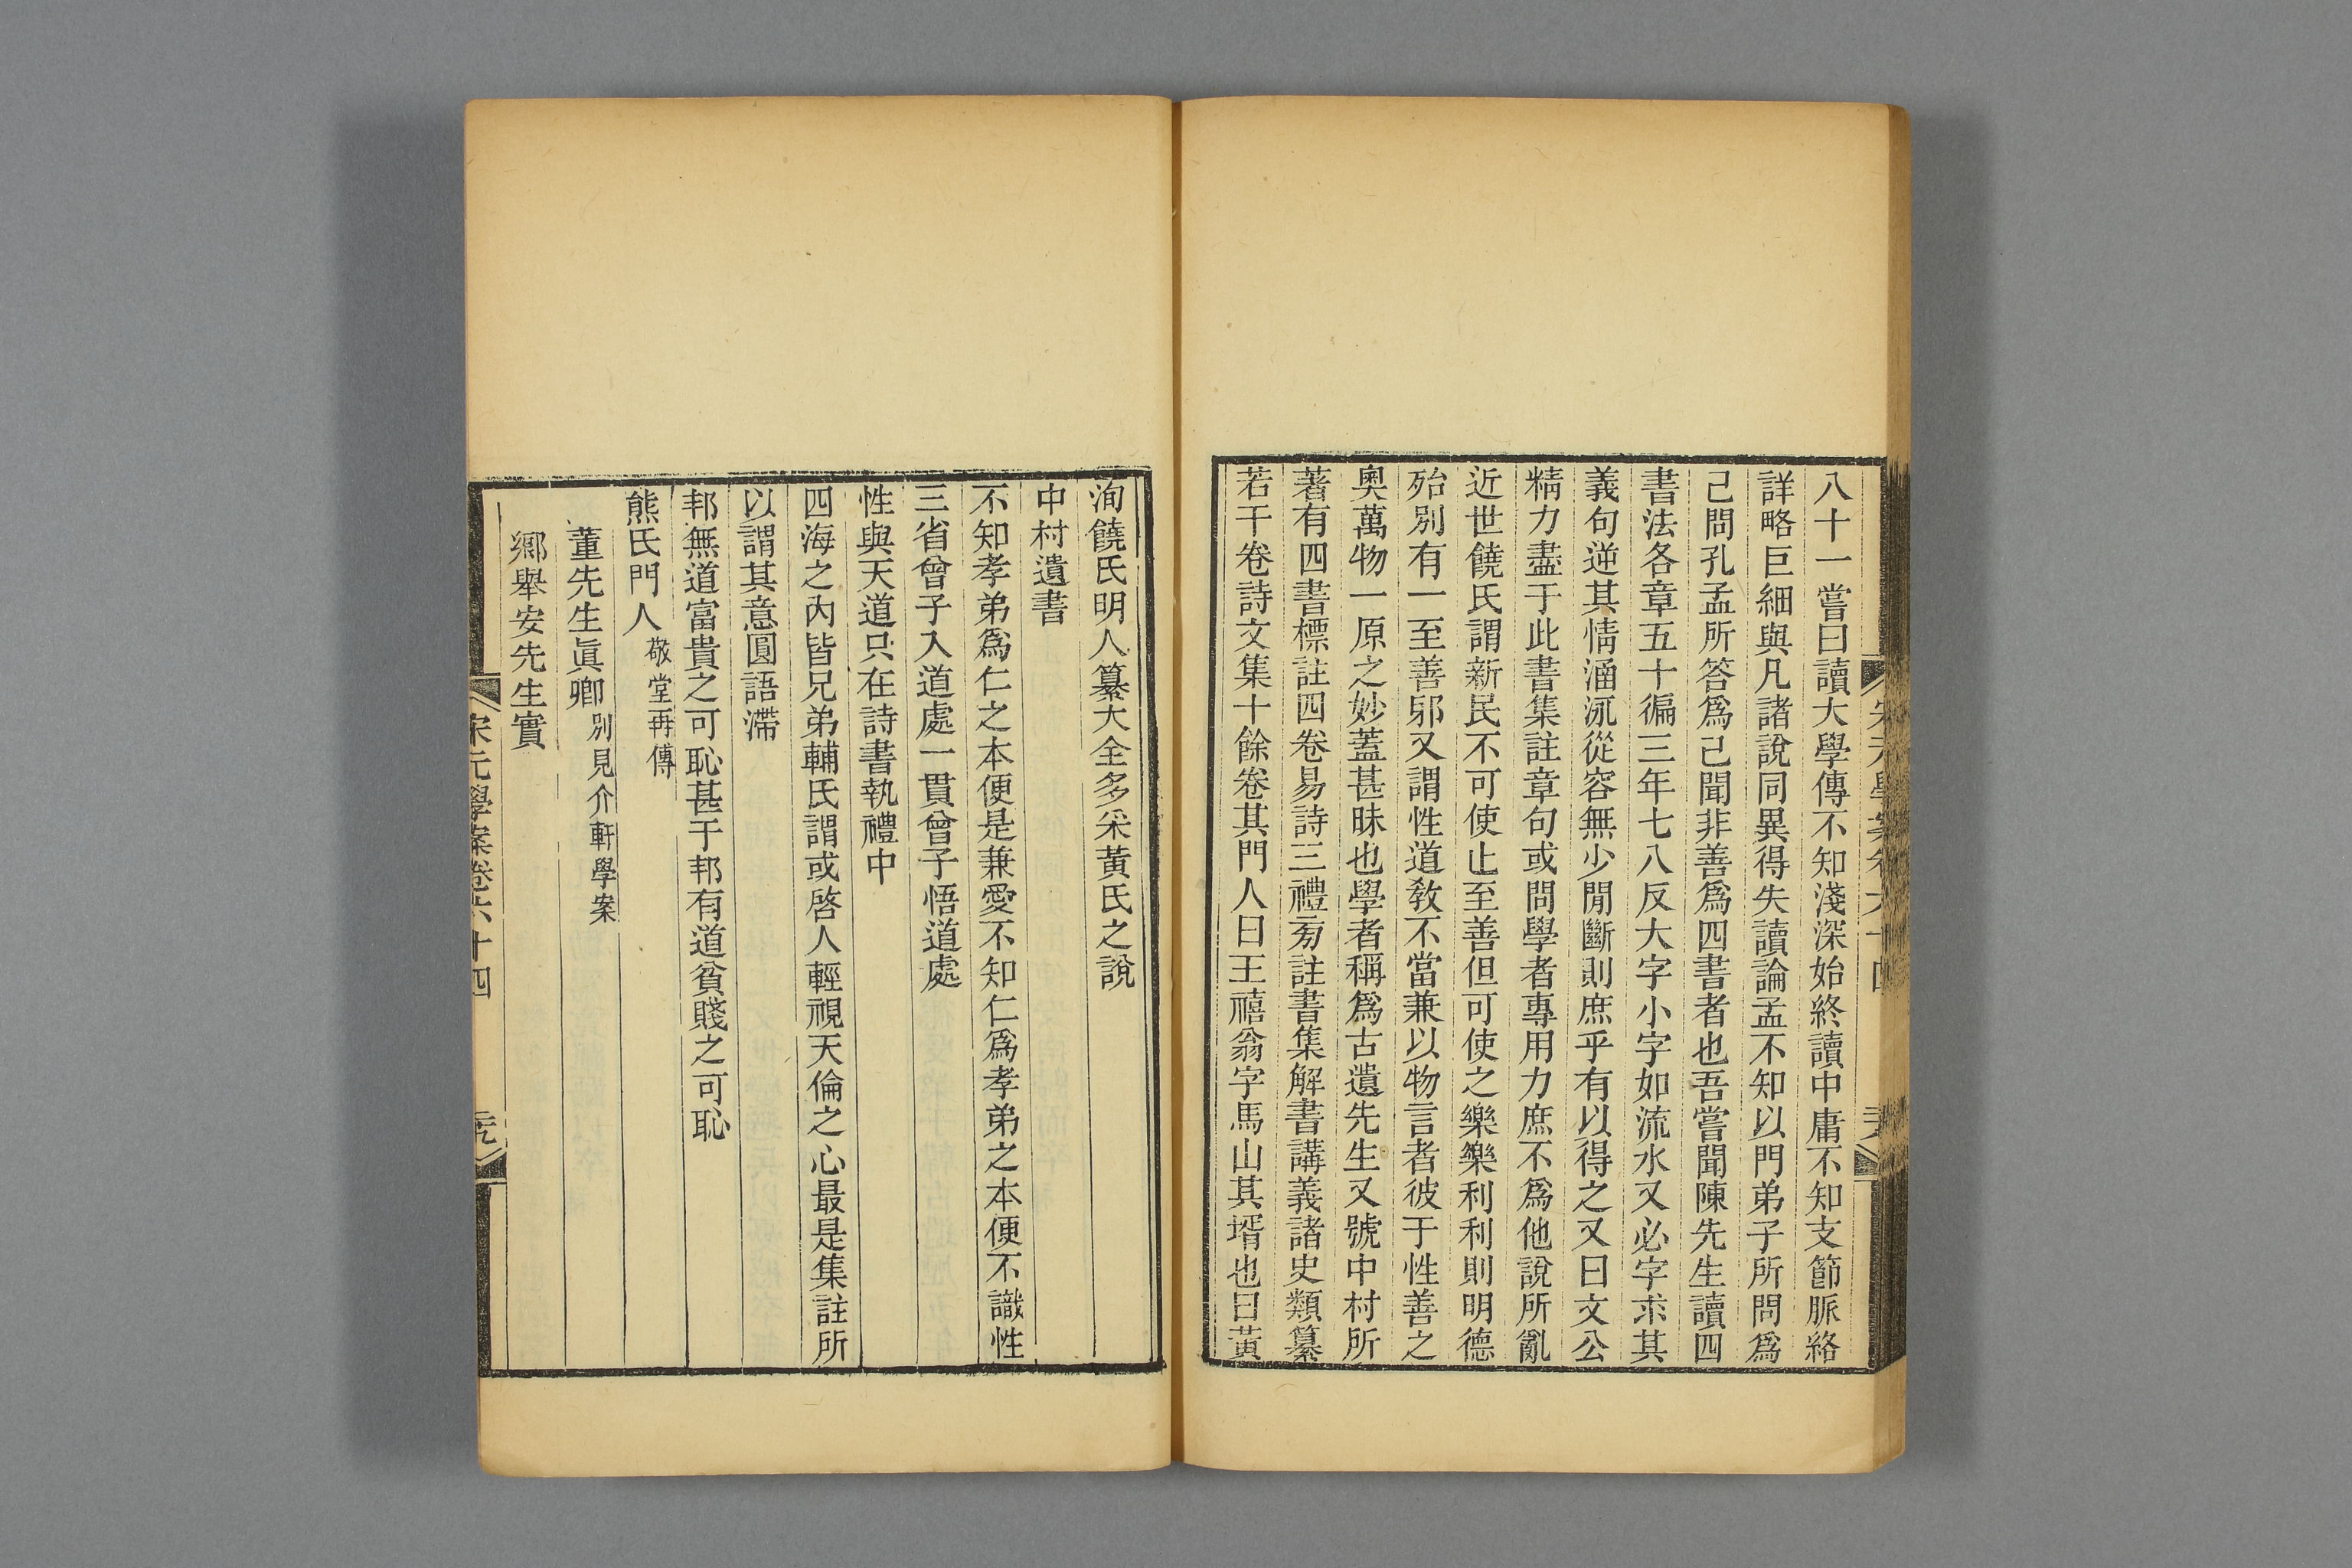 八十一嘗曰讀大學傳不知淺深始終讀中庸不知支節脈絡
詳略巨細與凡諸說同異得失讀論孟不知以門弟子所問爲
己問孔孟所答爲己聞非善爲四書者也吾嘗聞陳先生讀四
書法各章五十徧三年七八反大字小字如流水又必字求其
義句逆其情涵泳從容無少閒斷則庶乎有以得之又曰文公
精力盡于此書集註章句或問學者專用力庶不爲他說所亂
近世饒氏謂新民不可使止至善但可使之樂樂利利則明德
殆別有一至善邪又謂性道敎不當兼以物言者彼于性善之
奧萬物一原之妙蓋甚昧也學者稱爲古遺先生又號中村所
著有四書標註四卷易詩三禮旁註書集解書講義諸史類纂
若干卷詩文集十餘卷其門人曰王禧翁字馬山其壻也曰黃
洵饒氏明人纂大全多采黃氏之說
中村遺書
不知孝弟爲仁之本便是兼愛不知仁爲孝弟之本便不識性
三省曾子入道處一貫曾子悟道處
性與天道只在詩書執禮中
四海之內皆兄弟輔氏謂或啓人輕視天倫之心最是集註所
以謂其意圓語滯
邦無道富貴之可恥甚于邦有道貧賤之可恥
熊氏門人敬堂再傳
董先生眞卿別見介軒學案
鄉舉安先生實
宋元學案卷六十四